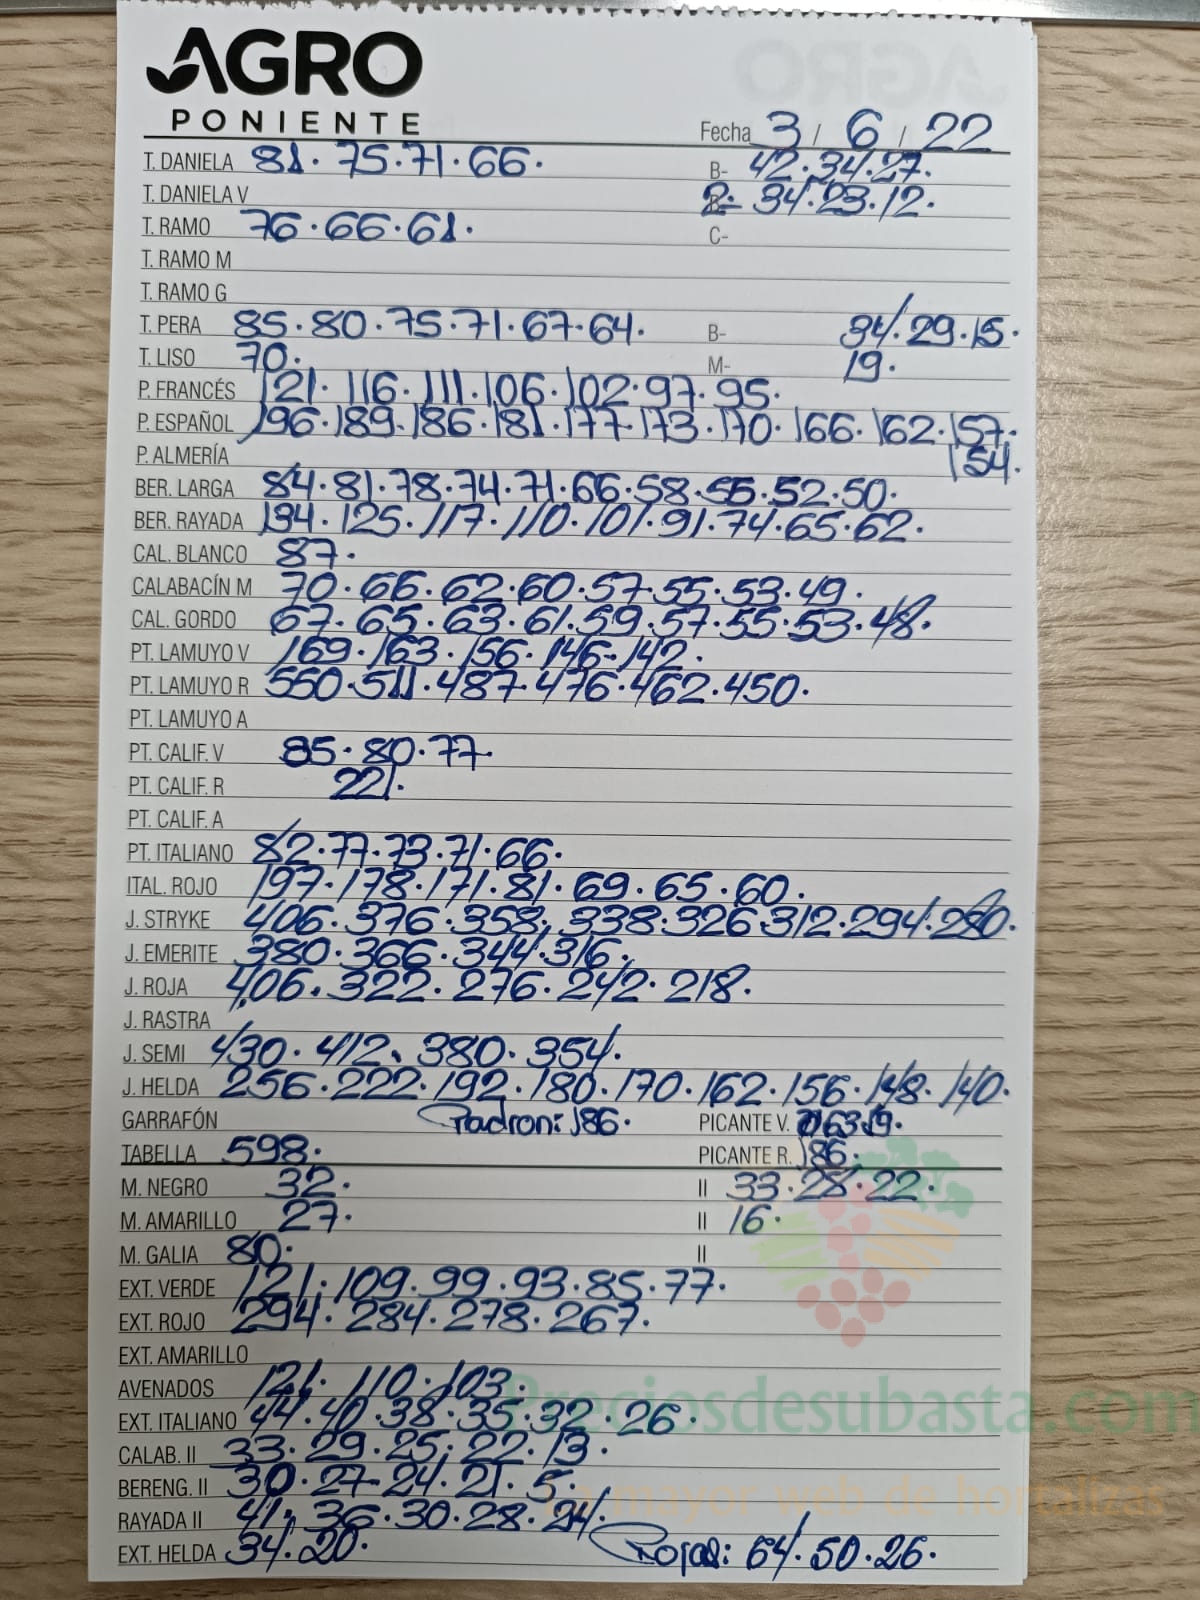 AGRO
PONIENTE
Fecha 3 / 6 / 22
T. DANIELA 81. 75. 71. 66. B- 42. 34. 27.
T. DANIELA V 2- 34. 23. 12.
T. RAMO 76. 66. 61. C-
T. RAMO M
T. RAMO G
T. PERA 85. 80. 75. 71. 67. 64. B- 34. 29. 15.
T. LISO 70. M- 19.
P. FRANCÉS 121. 116. 111. 106. 102. 97. 95.
P. ESPAÑOL 196. 189. 186. 181. 177. 173. 170. 166. 162. 157.
P. ALMERÍA 154.
BER. LARGA 84. 81. 78. 74. 71. 66. 58. 55. 52. 50.
BER. RAYADA 134. 125. 117. 110. 101. 91. 74. 65. 62.
CAL. BLANCO 87.
CALABACÍN M 70. 66. 62. 60. 57. 55. 53. 49.
CAL. GORDO 67. 65. 63. 61. 59. 57. 55. 53. 48.
PT. LAMUYO V 169. 163. 156. 146. 142.
PT. LAMUYO R 550. 511. 487. 476. 462. 450.
PT. LAMUYO A
PT. CALIF. V 85. 80. 77.
PT. CALIF. R 221.
PT. CALIF. A
PT. ITALIANO 82. 77. 73. 71. 66.
ITAL. ROJO 197. 178. 171. 81. 69. 65. 60.
J. STRYKE 406. 376. 358. 338. 326. 312. 294. 280.
J. EMERITE 380. 366. 344. 316.
J. ROJA 406. 322. 276. 242. 218.
J. RASTRA
J. SEMI 430. 412. 380. 354.
J. HELDA 256. 222. 192. 180. 170. 162. 156. 148. 140.
GARRAFÓN Padron: 186. PICANTE V.
TABELLA 598. PICANTE R. 186.
M. NEGRO 32. II 33. 28. 22.
M. AMARILLO 27. II 16.
M. GALIA 80. II
EXT. VERDE 121. 109. 99. 93. 85. 77.
EXT. ROJO 294. 284. 278. 267.
EXT. AMARILLO
AVENADOS 121. 110. 103.
Preciosdesubasta.com
EXT. ITALIANO 44. 40. 38. 35. 32. 26.
CALAB. II 33. 29. 25. 22. 13.
BERENG. II 30. 27. 24. 21. 5.
La mayor web de hortalizas
RAYADA II 41. 36. 30. 28. 24.
EXT. HELDA 34. 20. Rojas: 64. 50. 26.